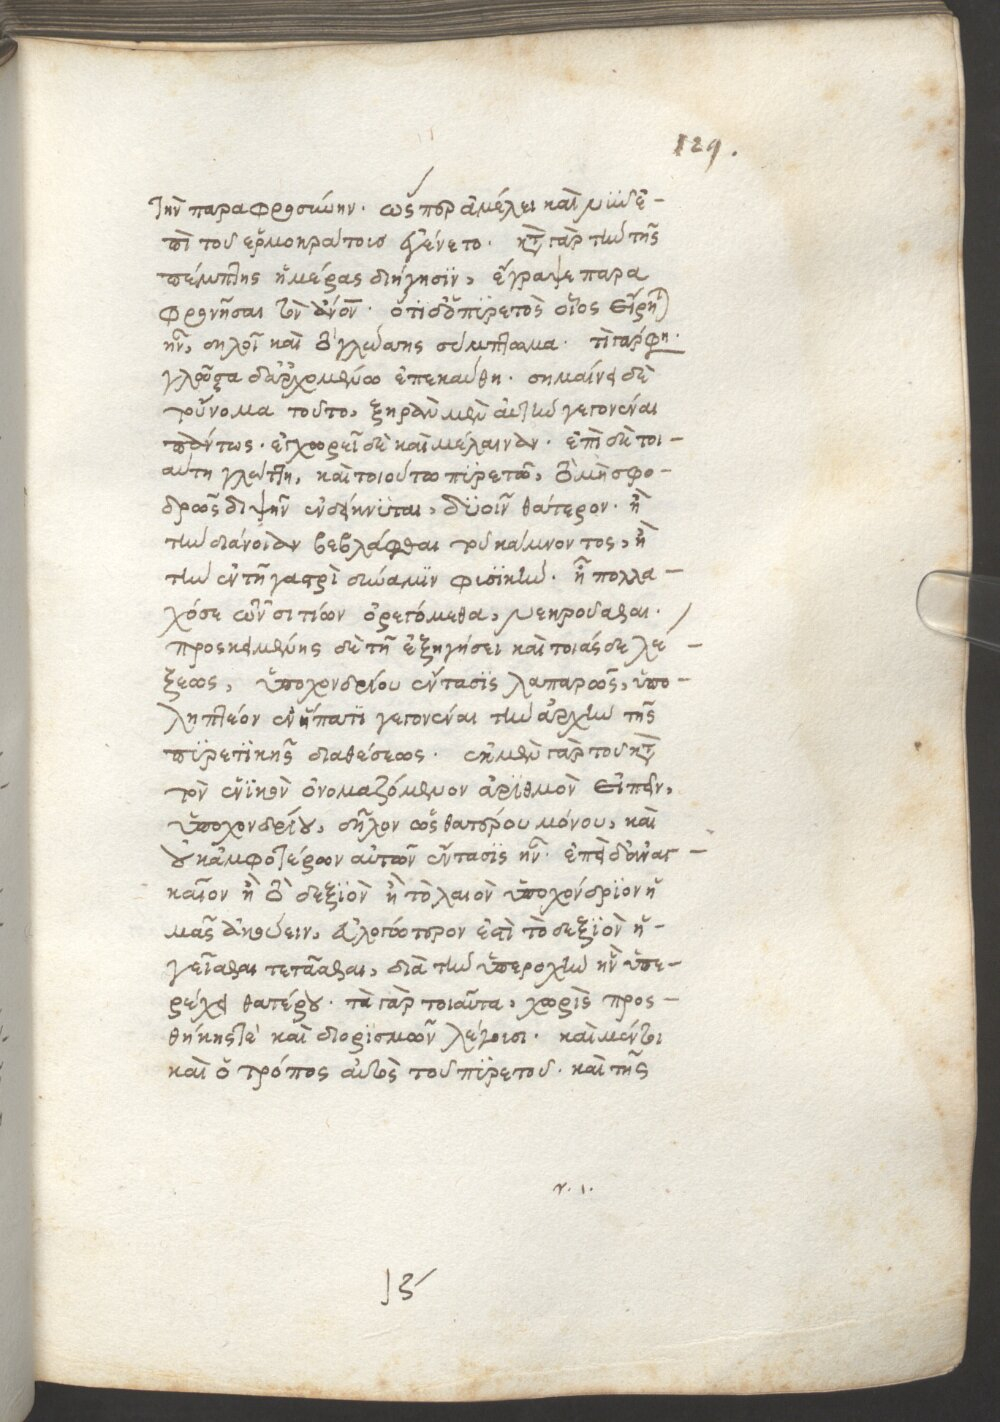 129.
την παραφροσύνην. ὥσπερ ἀμέλει καὶ νῦν ἐ-
πὶ τοῦ ἑρμοκράτους ἐγένετο. κατὰ γὰρ τὴν τῆς
πέμπτης ἡμέρας διήγησιν, ἔγραψε παρα
φρονῆσαι τὸν ἄνον. ὅτι δ' ὁ πυρετὸς οἷος εἴρητ(αι)
ἦν, δηλοῖ καὶ τὸ γλώττης σύμπτωμα. τί γάρ φη.
γλῶσσα δ' ἀρχομένω ἐπεκαύθη. σημαίνει δὲ
τοὔνομα τοῦτο, ξηρὰν μὲν αὐτὴν γεγονέναι
πάντως. ἐγχωρεῖ δὲ καὶ μέλαιναν. ἐπὶ δὲ τοι-
αύτη γλώττη, καὶ τοιούτω πυρετῶ, τὸ μὴ σφο-
δρῶς διψῆν ἐνδείκνυται, δυοῖν θάτερον. ἢ
τὴν διάνοιαν βεβλάφθαι τοῦ κάμνοντος, ἢ
τὴν ἐν τῆ γαστρὶ δύναμιν φυσικὴν. ἧ πολλα-
χόσε ὧν σιτίων ὀρεγόμεθα, νεκροῦσθαι.
προσκειμένης δὲ τῆ ἐξηγήσει καὶ τοιάσδε λέ-
ξεως, ὑποχονδρίου ἔντασις λαπαρῶς, ὑπο-
ληπτέον ἐν ἥπατι γεγονέναι τὴν ἀρχὴν τῆς
πυρετικῆς διαθέσεως. ἐκ μὲν γὰρ τοῦ κατὰ
τὸν ἑνικὸν ὀνομαζόμενον ἀριθμὸν εἰπεῖν,
ὑποχονδρίου, δῆλον ὡς θατέρου μόνου, καὶ
οὐκ ἀμφοτέρων αὐτῶν ἔντασις ἦν. ἐπεὶ δ' ἀναγ-
καῖον ἢ τὸ δεξιὸν ἢ τὸ λαιὸν ὑποχόνδριον ἡ
μᾶς ἀκούειν, εὐλογώτερον ἐπὶ τὸ δεξιὸν ἡ-
γεῖσθαι τετάσθαι, διὰ τὴν ὑπεροχὴν ἣν ὑπε-
ρέχει θατέρου. τὰ γὰρ τοιαῦτα, χωρὶς προσ-
θήκης τε καὶ διορισμῶν λέγουσι. καὶ μέντοι
καὶ ὁ τρόπος αὐτὸς τοῦ πυρετοῦ. καὶ τῆς